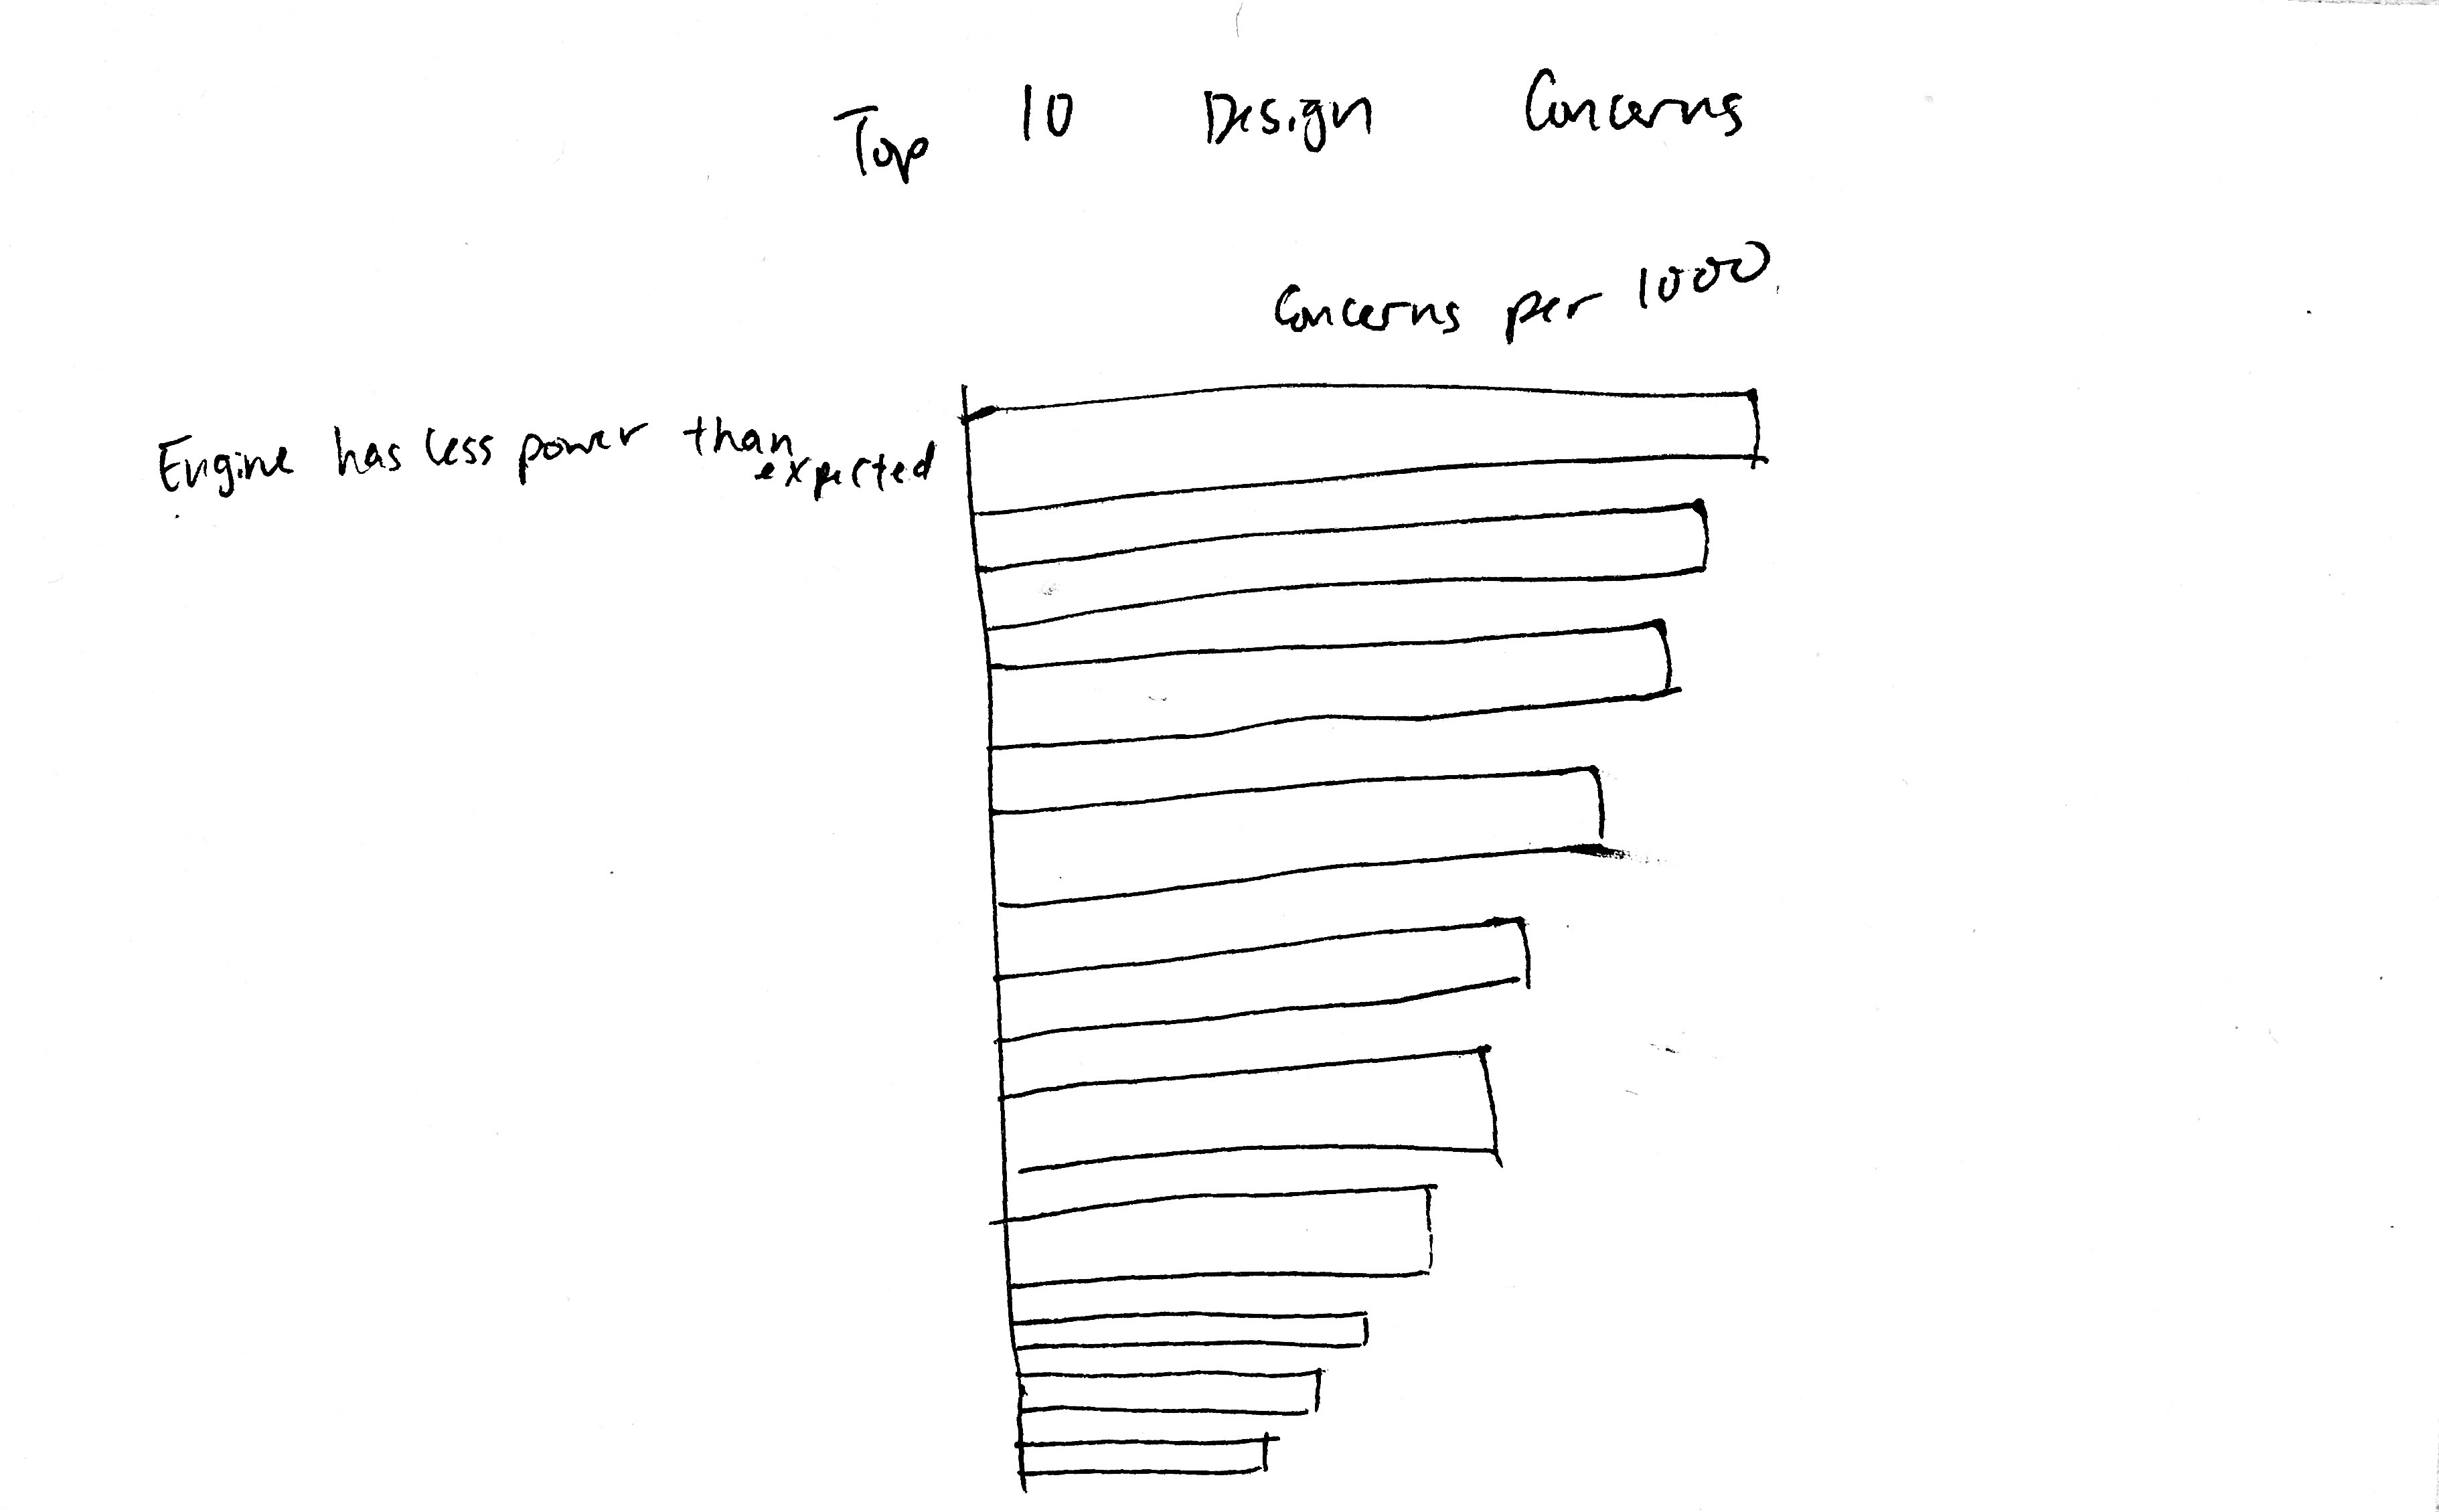 Top 10 Design Concerns
Concerns per 1000
Engine has less power than
expected